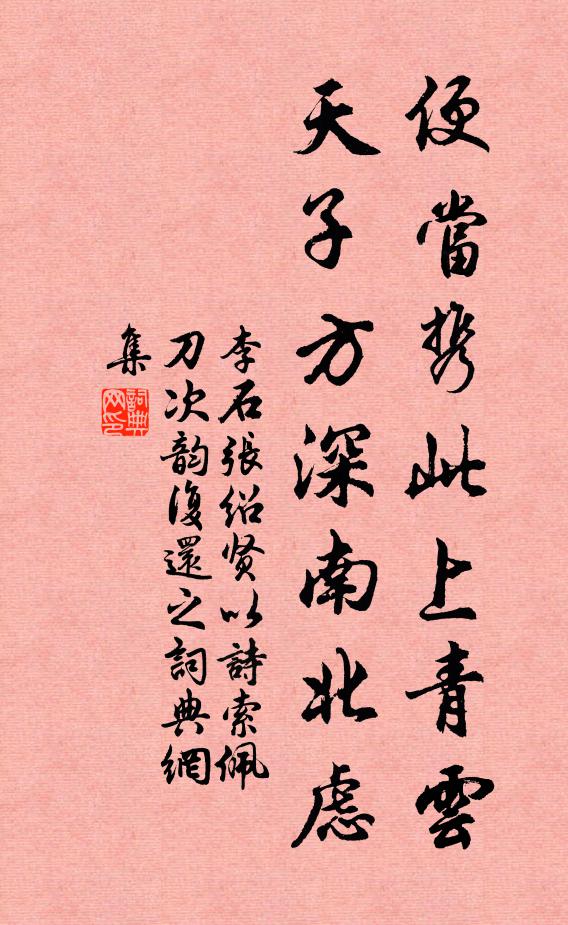 便當携此上青雲
天子方深南北慮
李石張紹贤以詩索佩
刀次韵復還之詞典網
集
詞典
网印